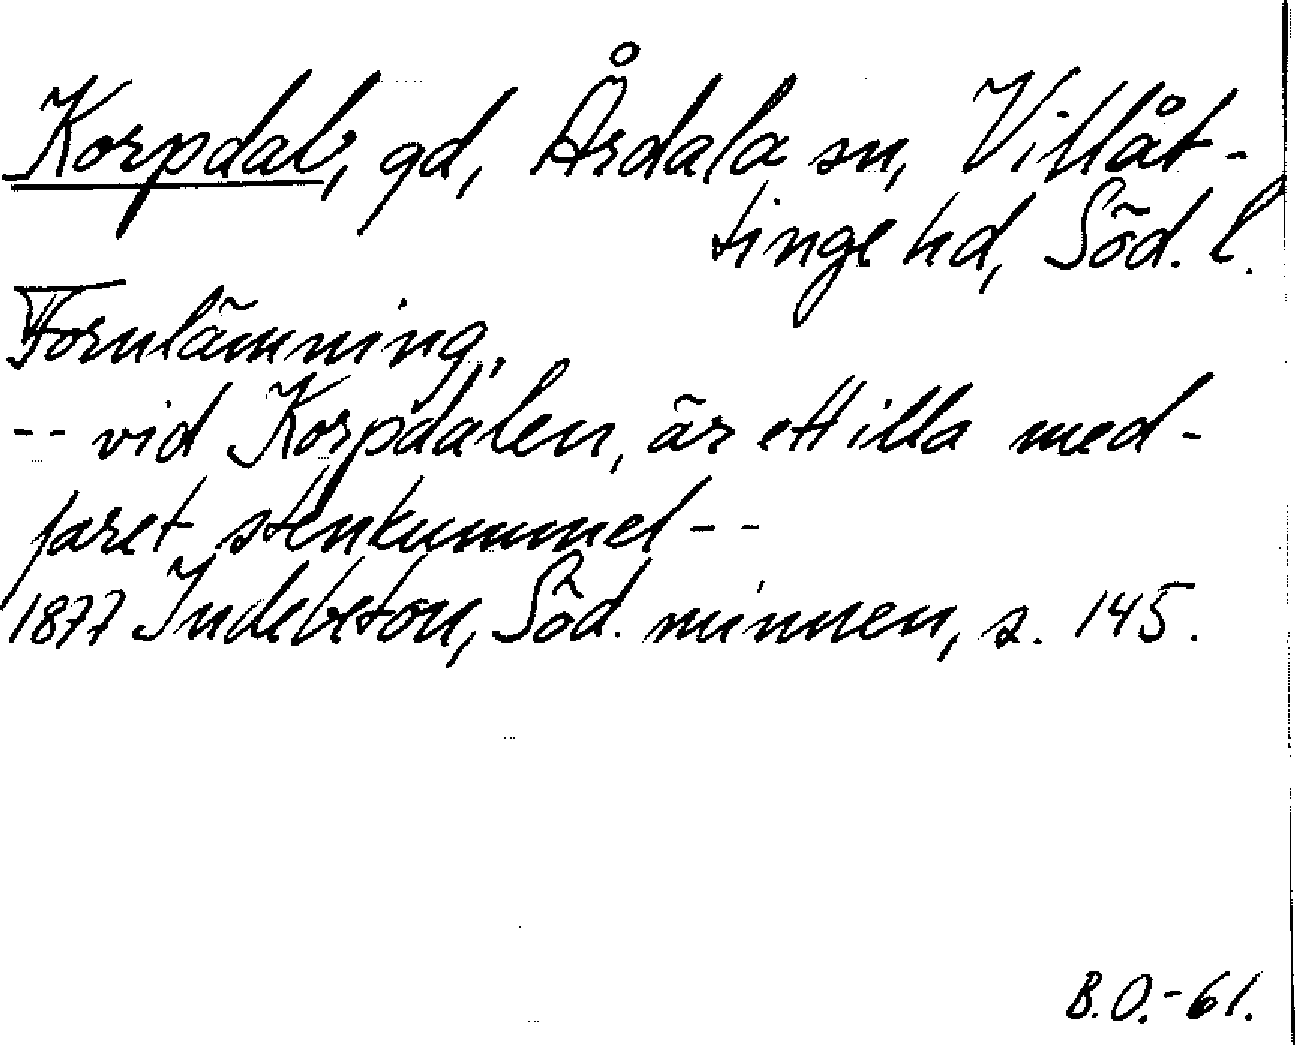 Korpdal, gd, Årdala sn, Villåt-
tinge hd, Söd. l.
Fornlämning.
-- vid Korpdalen, är ett illa med-
faret stenkummel --
1877 Indebetou, Söd. minnen, s. 145.
B.O.-61.